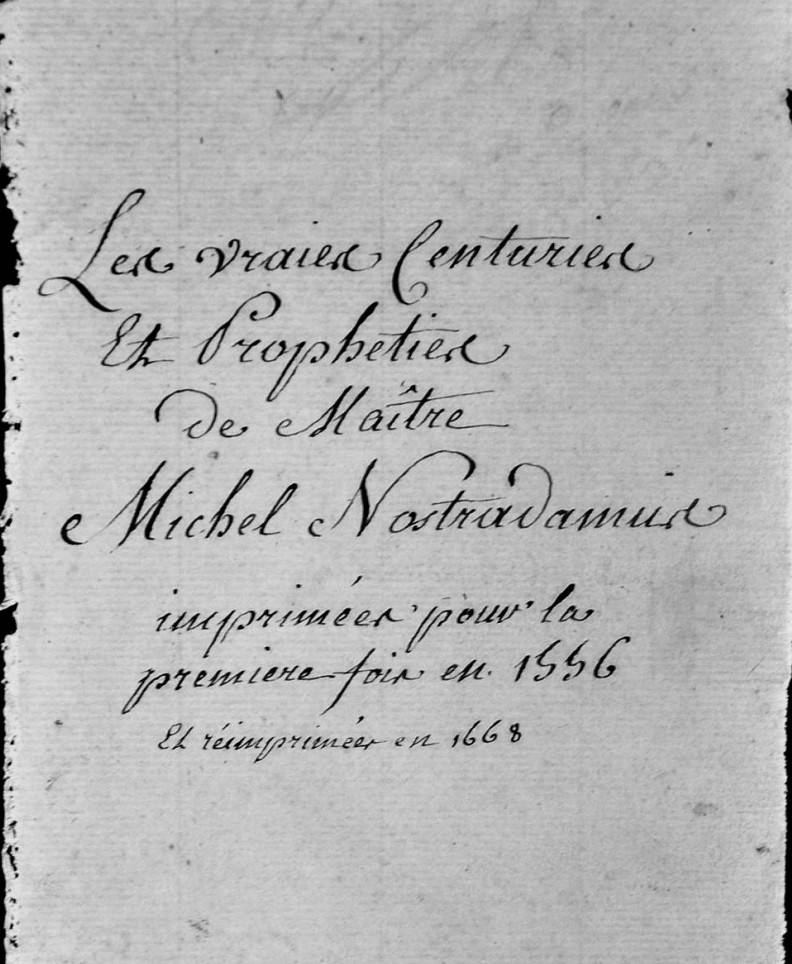 Les vraies Centuries
Et Propheties
de Maître
Michel Nostradamus
imprimées pour la
premiere fois en 1556
Et réimprimées en 1668